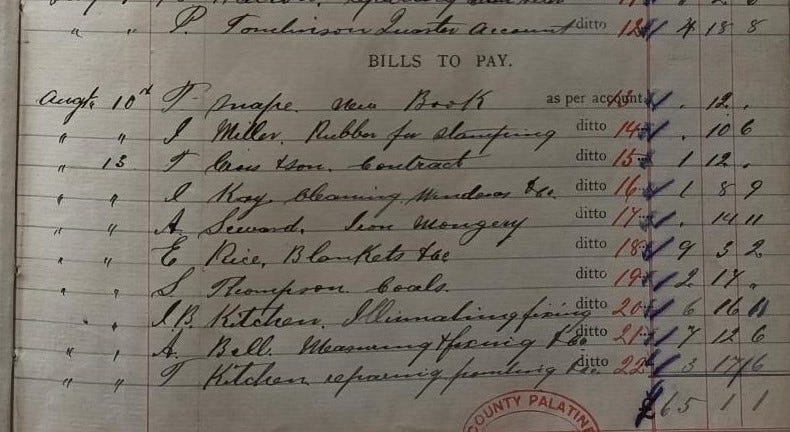 " " P. Tomlinson Quarter Account ditto 12 4 18 8
BILLS TO PAY.
Augt. 10 T Snape. New Book as per account 13 . 12 .
" " J Miller. Rubber for stamping ditto 14 . 10 6
" 13 T & Son. Contract ditto 15 1 12 .
" " J Kay. Cleaning Windows &c. ditto 16 1 8 9
" " A. Seward. Iron Mongery ditto 17 . 14 11
" " E Rice, Blankets &c ditto 18 9 3 2
" " S Thompson. Coals. ditto 19 2 17 "
" J.B. Kitchen. fixing ditto 20 6 16 11
" " A. Bell. Measuring & fixing &c ditto 21 7 12 6
" " T Kitchen repairing &c ditto 22 3 17 6
£65 1 1
COUNTY PALATINE